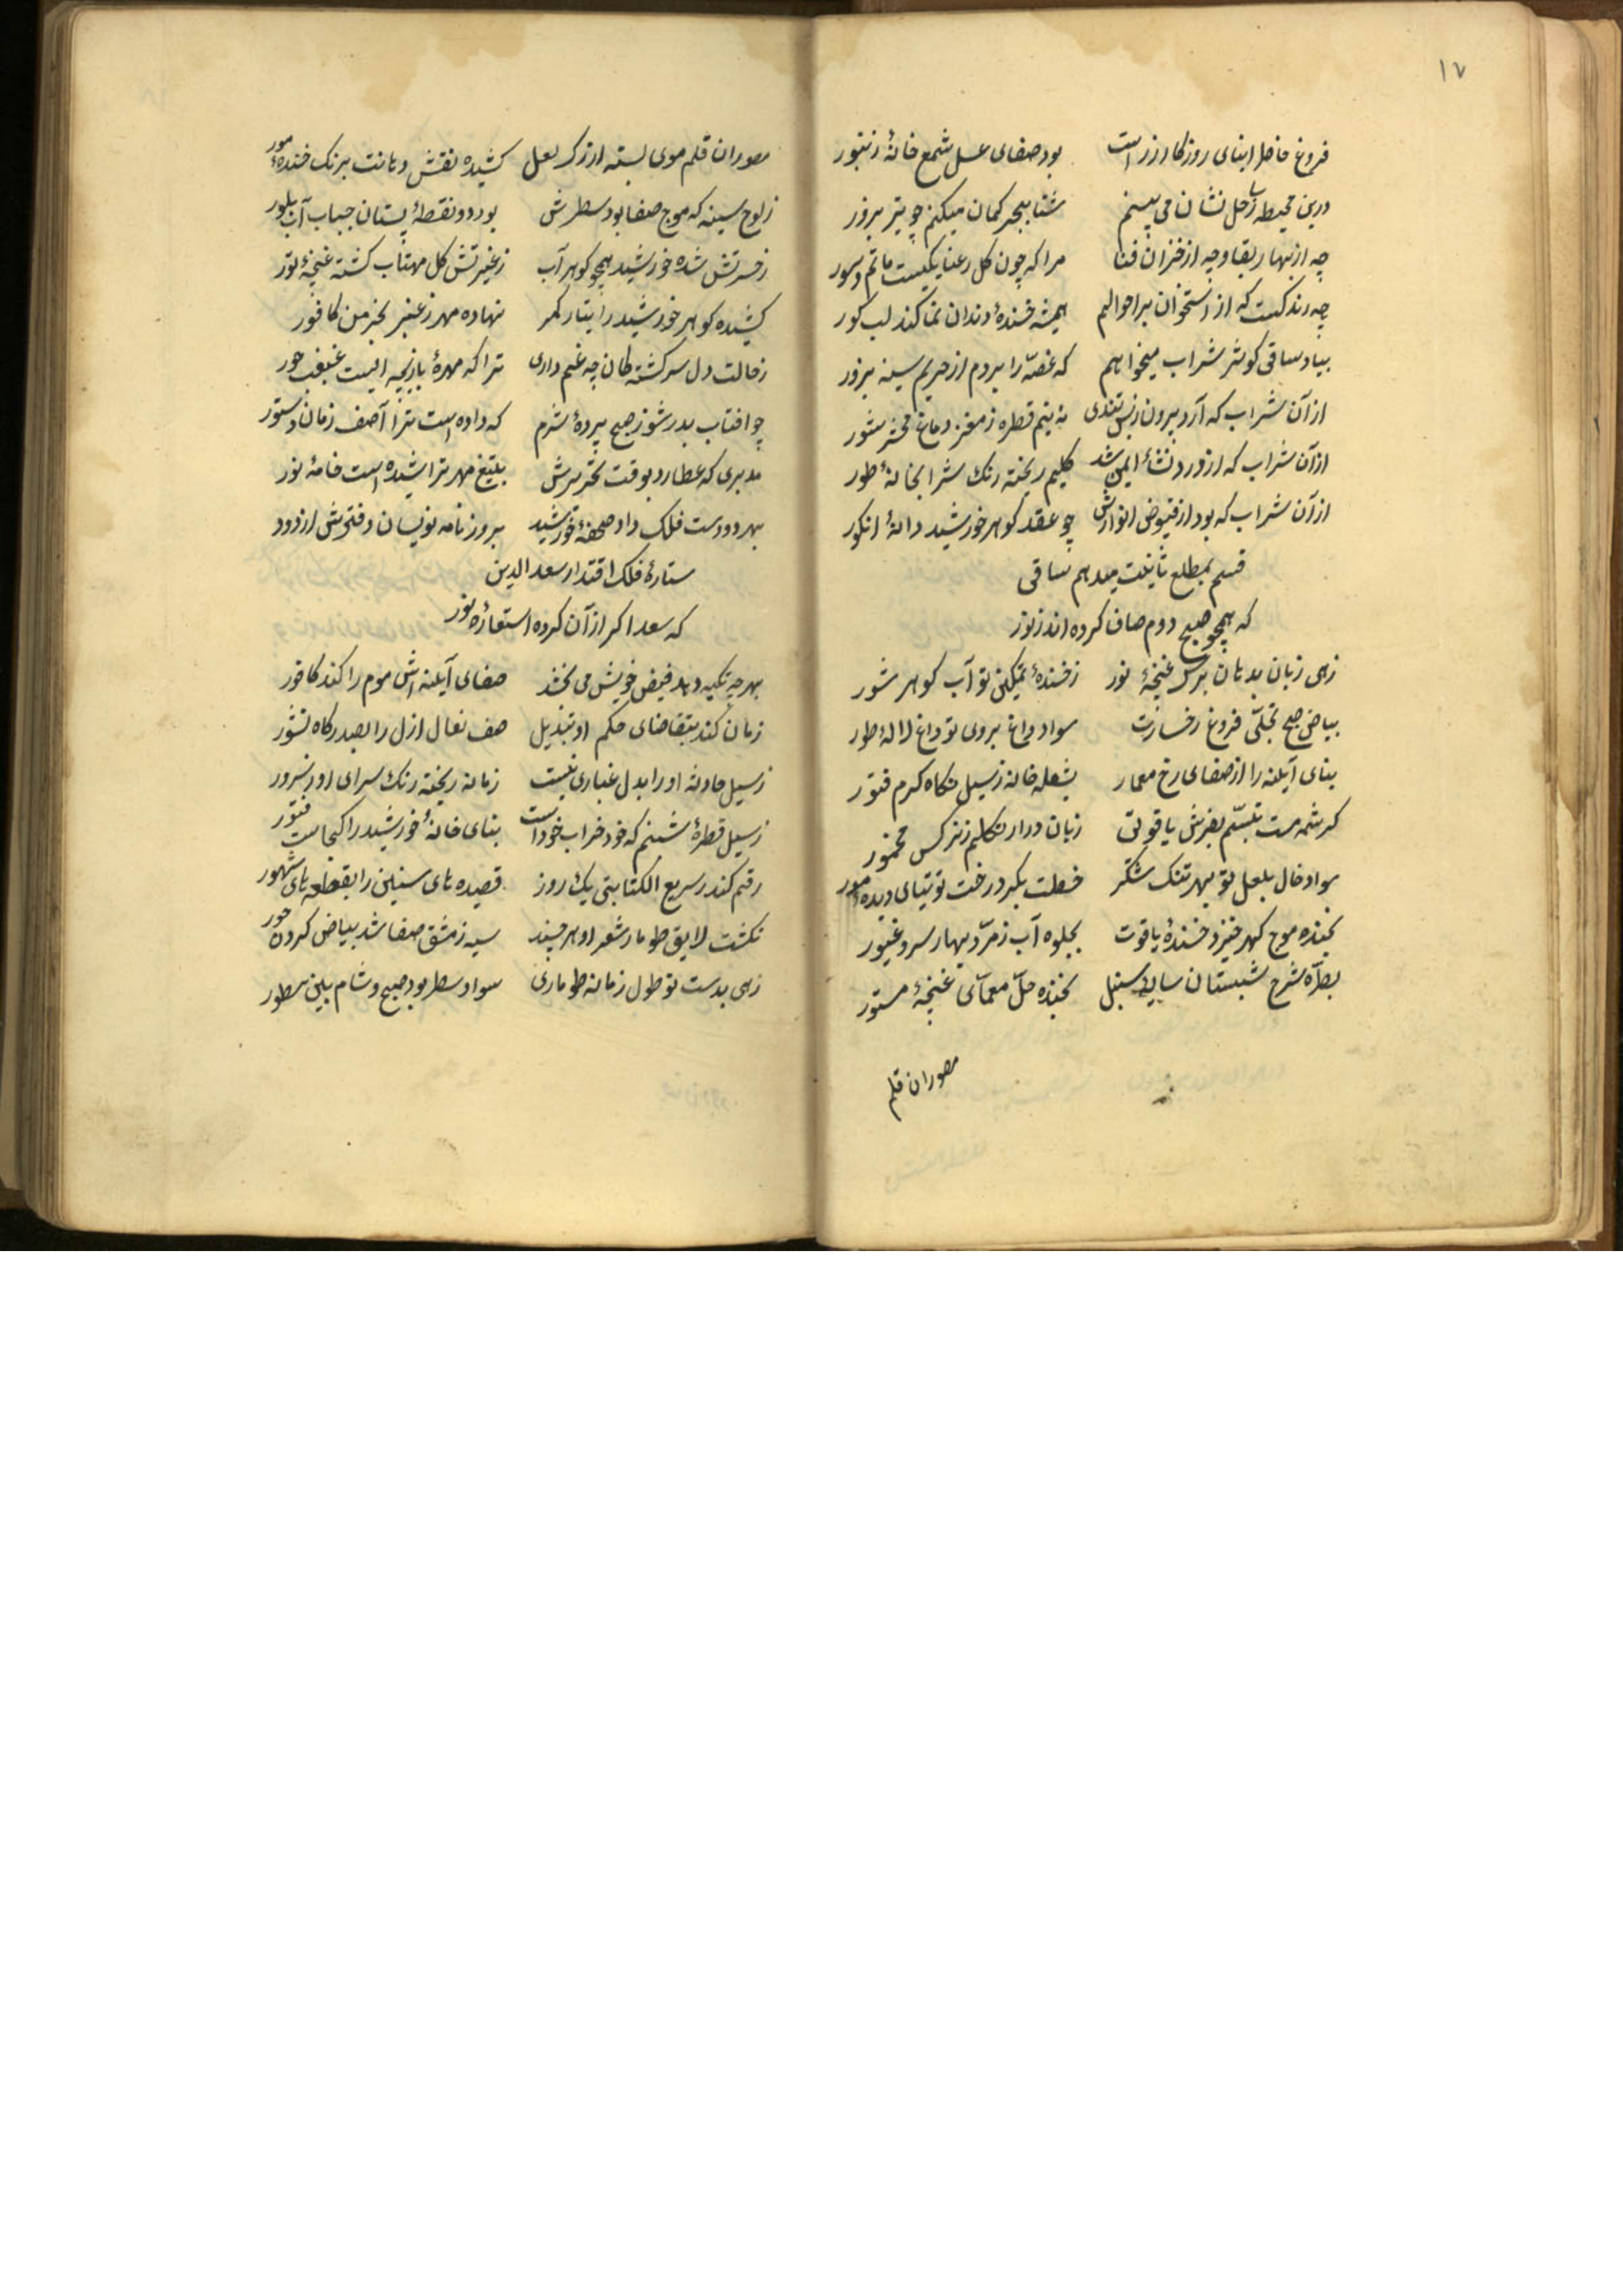 ۱۷
فروغ حاصل ابنای روزکار زر است بود صفای عسل شمع خانهٔ زنبور
درین محیط ز ساحل نشان نمی بینم شنا ببحر کمان میکنم چو تیر بزور
چه از بهار بقا و چه از خزان فنا مرا که چون کل رعنا یکیست ماتم و سور
چه زندکیست که از استخوان بر احوالم همیشه خندهٔ دندان نما کند لب کور
بیاد ساقی کوثر شراب میخواهم که غصّه را ببرم از حریم سینه بزور
از آن شراب که آرد برون ز بس تندی به نیم قطره ز مغز دماغ محشر شور
از آن شراب که از درد نشأ ایمن شد کلیم ریخته رنک شرابخانهٔ طور
از آن شراب که بود از فیوض انوارش چو عقد کوهر خورشید دانهٔ انکور
قسم بمطلع ثانیت میدهم ساقی
که همچو صبح دوم صاف کرده اند ز نور
زهی زبان بدهان برک غنچهٔ نور ز خندهٔ نمکین تو آب کوهر شور
بیاض صبح تجلّی فروغ رخسارت سواد داغ بروی تو داغ لالهٔ طور
بنای آینه را از صفای رخ معمار بشعله خانه ز سیل نکاه کرم فتور
کرشمه مست تبسّم بفرش یاقوتی زبان دراز تکلم ز نرکس مخمور
سواد خال بلعل تو مهر تنک شکر خطت بکرد رخت توتیای دیدهٔ مور
بخنده موج کهر خیزد خندهٔ یاقوت بجلوه آب زمرّد بهار سرو غیور
بطرّه شرح شبستان سایهٔ سنبل بخنده حلّ معمّای غنچهٔ مستور
مصوران قلم
مصوران قلم موی بسته از رک لعل کشیده نقش دهانت برنک خندهٔ مور
ز لوح سینه که موج صفا بود سطرش بود دو نقطهٔ پستان حباب آب بلور
ز حسرتش شده خورشید همچو کوهر آب ز غیرتش کل مهتاب کشته غنچهٔ نور
کشیده کوهر خورشید را بتار کمر نهاده مهر ز عنبر بخرمن کافور
ز حالت دل سرکشتکان چه غم داری ترا که مهرهٔ بازیچه ایست غبغب حور
چو افتاب بدر شو ز صبح پردهٔ شرم که داده است ترا آصف زمان دستور
مدبری که عطارد بوقت تحریرش بتیغ مهر تراشیده است خامهٔ نور
بهر دو دست فلک داد صحنهٔ خورشید بروزنامه نویسان دفترش از دور
ستارهٔ فلک اقتدار سعدالدین
که سعد اکبر از آن کرده استعارهٔ نور
بهر چه تکیه دهد فیض خویش می بخشد صفای آینه اش موم را کند کافور
زمان کند بتقاضای حکم او تبدیل صف نعال ازل را بصدرکاه نشور
ز سیل حادثه او را بدل غباری نیست زمانه ریخته رنک سرای او ز سرور
ز سیل قطرهٔ شبنم که خود خراب خود است بنای خانهٔ خورشید را کجاست فتور
رقم کند ز سریع الکتابتی یک روز قصیده های سنین را بقطعه های شهور
نکشت لایق طومار شعر او هر چند سیه ز مشق صفا شد بیاض کردن حور
زهی بدست تو طول زمانه طوماری سواد سطر بود صبح و شام بین سطور